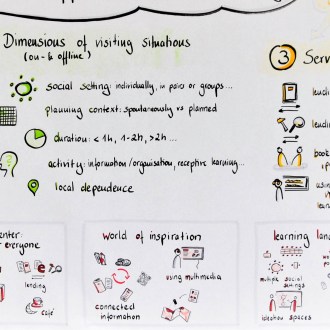 Dimensions of visiting situations
(on- & offline)
social setting: individually, in pairs or groups...
planning context: spontaneously vs planned
duration: < 1h, 1-2h, >2h ...
activity: information/organisation, receptive learning...
local dependence
3 Serv
lendi
lendin
book
using
learn
enter
everyone
lending
café
World of inspiration
using multimedia
connected
information
learning lan
multiple social
settings
ideation spaces